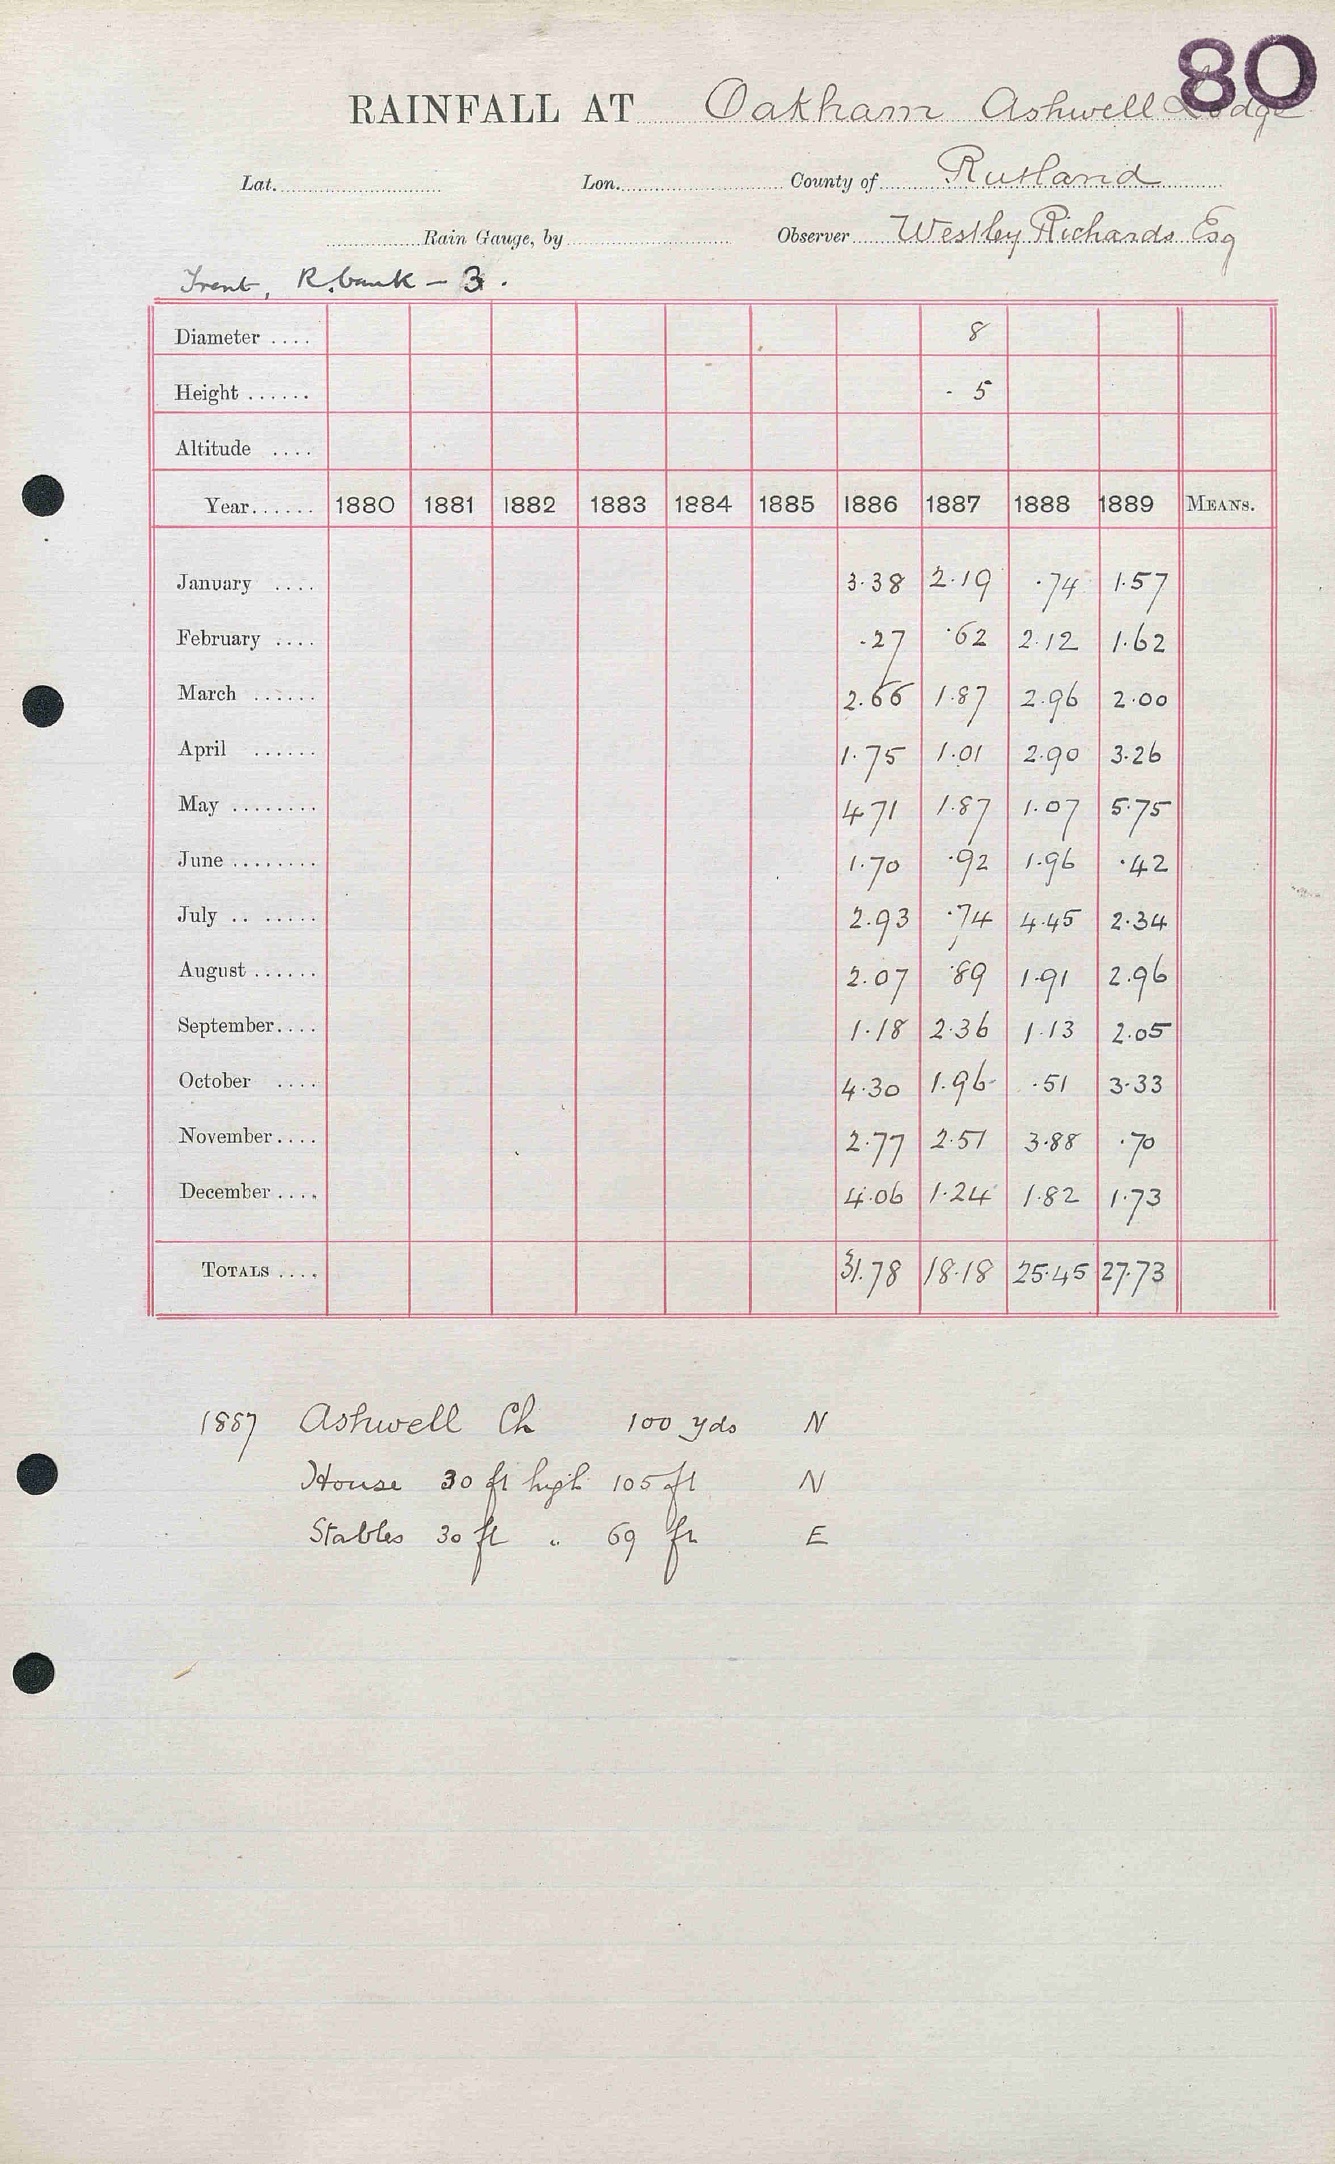 80
RAINFALL AT Oakham Ashwell Lodge
Lat. Lon. County of Rutland
Rain Gauge, by Observer Westley Richards Esq
Trent, R. bank – 3.
Diameter .... 8
Height ...... - 5
Altitude ....
Year...... 1880 1881 1882 1883 1884 1885 1886 1887 1888 1889 MEANS.
January .... 3.38 2.19 .74 1.57
February .... .27 .62 2.12 1.62
March ...... 2.66 1.87 2.96 2.00
April ...... 1.75 1.01 2.90 3.26
May ........ 4.71 1.87 1.07 5.75
June ........ 1.70 .92 1.96 .42
July .. ...... 2.93 .74 4.45 2.34
August ...... 2.07 .89 1.91 2.96
September.... 1.18 2.36 1.13 2.05
October .... 4.30 1.96 .51 3.33
November.... 2.77 2.51 3.88 .70
December .... 4.06 1.24 1.82 1.73
TOTALS .... 31.78 18.18 25.45 27.73
1887 Ashwell Ch 100 yds N
House 30 ft high 105 ft N
Stables 30 ft " 69 ft E